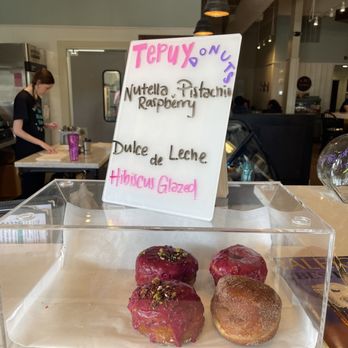 TEPUY DONUTS
Nutella, Pistachio
Raspberry
Dulce de Leche
Hibiscus Glazed